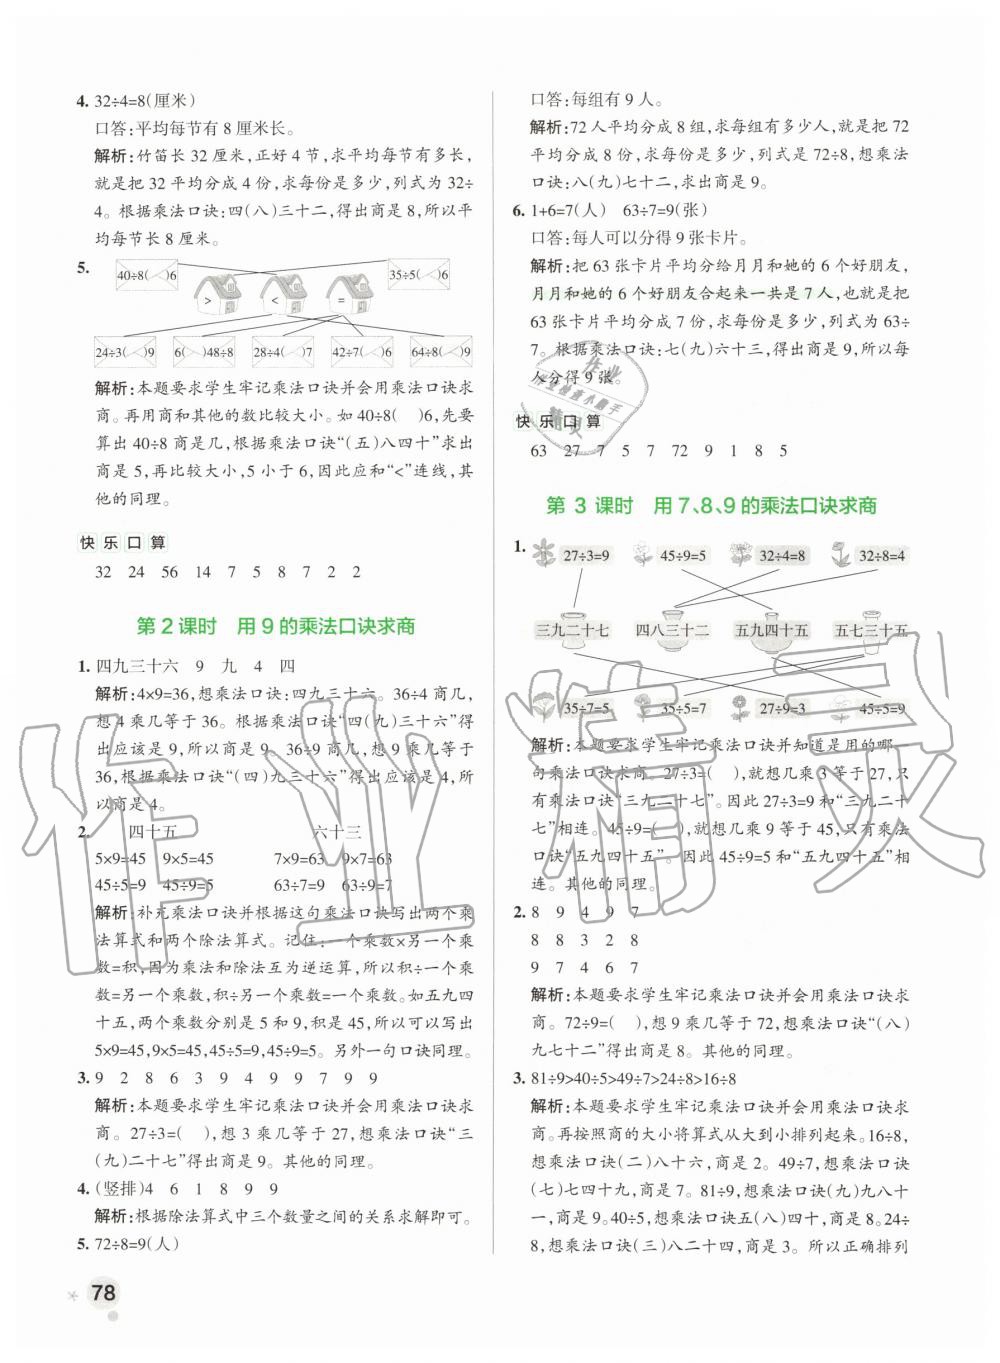 4. 32÷4=8(厘米)
口答:平均每节有 8 厘米长。
解析:竹笛长 32 厘米,正好 4 节,求平均每节有多长,
就是把 32 平均分成 4 份,求每份是多少,列式为 32÷
4。根据乘法口诀:四(八)三十二,得出商是 8,所以平
均每节长 8 厘米。
5.
40÷8( )6 35÷5( )6
> < =
24÷3( )9 6( )48÷8 28÷4( )7 42÷7( )6 64÷8( )9
解析:本题要求学生牢记乘法口诀并会用乘法口诀求
商。再用商和其他的数比较大小。如 40÷8( )6,先要
算出 40÷8 商是几,根据乘法口诀“(五)八四十”求出
商是 5,再比较大小,5 小于 6,因此应和“<”连线,其
他的同理。
快乐口算
32 24 56 14 7 5 8 7 2 2
第 2 课时 用 9 的乘法口诀求商
1. 四九三十六 9 九 4 四
解析:4×9=36,想乘法口诀:四九三十六。36÷4 商几,
想 4 乘几等于 36。根据乘法口诀“四(九)三十六”得
出应该是 9,所以商是 9。36÷9 商几,想几乘 9 等于
36,根据乘法口诀“(四)九三十六”得出应该是 4,所
以商是 4。
2. 四十五 六十三
5×9=45 9×5=45 7×9=63 9×7=63
45÷5=9 45÷9=5 63÷7=9 63÷9=7
解析:补充乘法口诀并根据这句乘法口诀写出两个乘
法算式和两个除法算式。记住:一个乘数×另一个乘
数=积,因为乘法和除法互为逆运算,所以积÷一个乘
数=另一个乘数,积÷另一个乘数=一个乘数。如五九四
十五,两个乘数分别是 5 和 9,积是 45,所以可以写出
5×9=45,9×5=45,45÷5=9,45÷9=5。另外一句口诀同理。
3. 9 2 8 6 3 9 4 9 9 7 9 9
解析:本题要求学生牢记乘法口诀并会用乘法口诀求
商。27÷3=( ),想 3 乘几等于 27,想乘法口诀“三
(九)二十七”得出商是 9。其他的同理。
4. (竖排)4 6 1 8 9 9
解析:根据除法算式中三个数量之间的关系求解即可。
5. 72÷8=9(人)
78
口答:每组有 9 人。
解析:72 人平均分成 8 组,求每组有多少人,就是把 72
平均分成 8 份,求每份是多少,列式是 72÷8,想乘法
口诀:八(九)七十二,求出商是 9。
6. 1+6=7(人) 63÷7=9(张)
口答:每人可以分得 9 张卡片。
解析:把 63 张卡片平均分给月月和她的 6 个好朋友,
月月和她的 6 个好朋友合起来一共是 7 人,也就是把
63 张卡片平均分成 7 份,求每份是多少,列式为 63÷
7。根据乘法口诀:七(九)六十三,得出商是 9,所以每
人分得 9 张。
快乐口算
63 27 7 5 7 72 9 1 8 5
第 3 课时 用 7、8、9 的乘法口诀求商
1.
27÷3=9 45÷9=5 32÷4=8 32÷8=4
三九二十七 四八三十二 五九四十五 五七三十五
35÷7=5 35÷5=7 27÷9=3 45÷5=9
解析:本题要求学生牢记乘法口诀并知道是用的哪一
句乘法口诀求商。27÷3=( ),想几乘 3 等于 27,只
有乘法口诀“三九二十七”。因此 27÷3=9 和“三九二十
七”相连。45÷9=( ),就想几乘 9 等于 45,只有乘法
口诀“五九四十五”。因此 45÷9=5 和“五九四十五”相
连。其他的同理。
2. 8 9 4 9 7
8 8 3 2 8
9 7 4 6 7
解析:本题要求学生牢记乘法口诀并会用乘法口诀求
商。72÷9=( ),想 9 乘几等于 72,想乘法口诀“(八)
九七十二”得出商是 8。其他的同理。
3. 81÷9>40÷5>49÷7>24÷8>16÷8
解析:本题要求学生牢记乘法口诀并会用乘法口诀求
商。再按照商的大小将算式从大到小排列起来。16÷8,
想乘法口诀(二)八十六,商是 2。49÷7,想乘法口诀
(七)七四十九,商是 7。81÷9,想乘法口诀(九)九八十
一,商是 9。40÷5,想乘法口诀五(八)四十,商是 8。24÷
8,想乘法口诀(三)八二十四,商是 3。所以正确排列
作业精灵